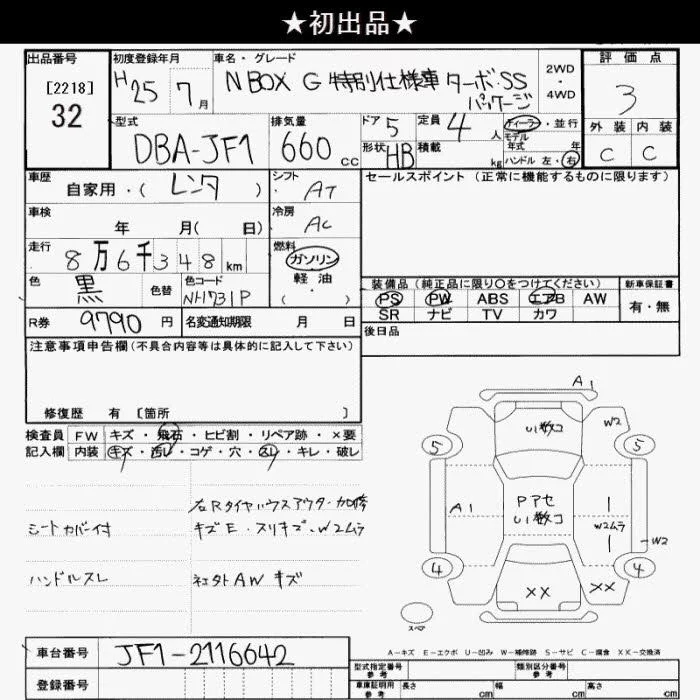 ★初出品★
出品番号
[2218]
32
初度登録年月
H25 7月
車名・グレード
N BOX G 特別仕様車 ターボSS
パッケージ
2WD
・
4WD
評価点
3
外装 内装
C C
型式
DBA-JF1
排気量
660 cc
ドア 5
定員 4 人
ディーラー・並行
モデル
年式 年
形状 HB
積載 kg
ハンドル 左・右
車歴
自家用・(レンタ)
シフト
AT
セールスポイント(正常に機能するものに限ります)
車検
年 月( 日)
冷房
AC
走行
8万6千348km
燃料
ガソリン
軽油
( ・ )
色
黒
色替
色コード
NH731P
装備品(純正品に限り○をつけてください)
新車保証書
PS PW ABS エアB AW
SR ナビ TV カワ
有・無
R券 9790 円
名変通知期限 月 日
後日品
注意事項申告欄(不具合内容等は具体的に記入して下さい)
修復歴 有 [箇所 ]
検査員 FW キズ・飛石・ヒビ割・リペア跡・×要
記入欄 内装 キズ・汚レ・コゲ・穴・スレ・キレ・破レ
右Rタイヤハウスアウター加修
シートカバー付
キズE・スリキズ・W2ムラ
ハンドルスレ
社外AWキズ
A1
U1数コ
W2
5
5
A1
Pアセ
U1数コ
W2ムラ
W2
4
4
××
××
スペア
A-キズ E-エクボ U-凹み W-補修跡 S-サビ C-腐食 XX-交換済
車台番号 JF1-2116642
登録番号
型式指定番号
参考
類別区分番号
参考
車庫証明用
参考
長さ cm
幅 cm
高さ cm